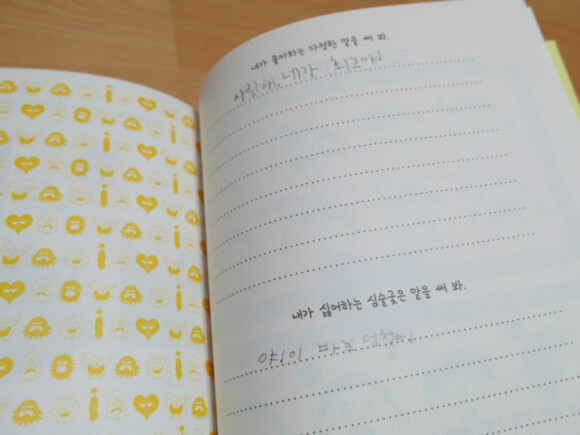 내가 좋아하는 다정한 말을 써 봐.
사랑해, 네가 최고야
내가 싫어하는 심술궂은 말을 써 봐.
야이이 바보 멍청이